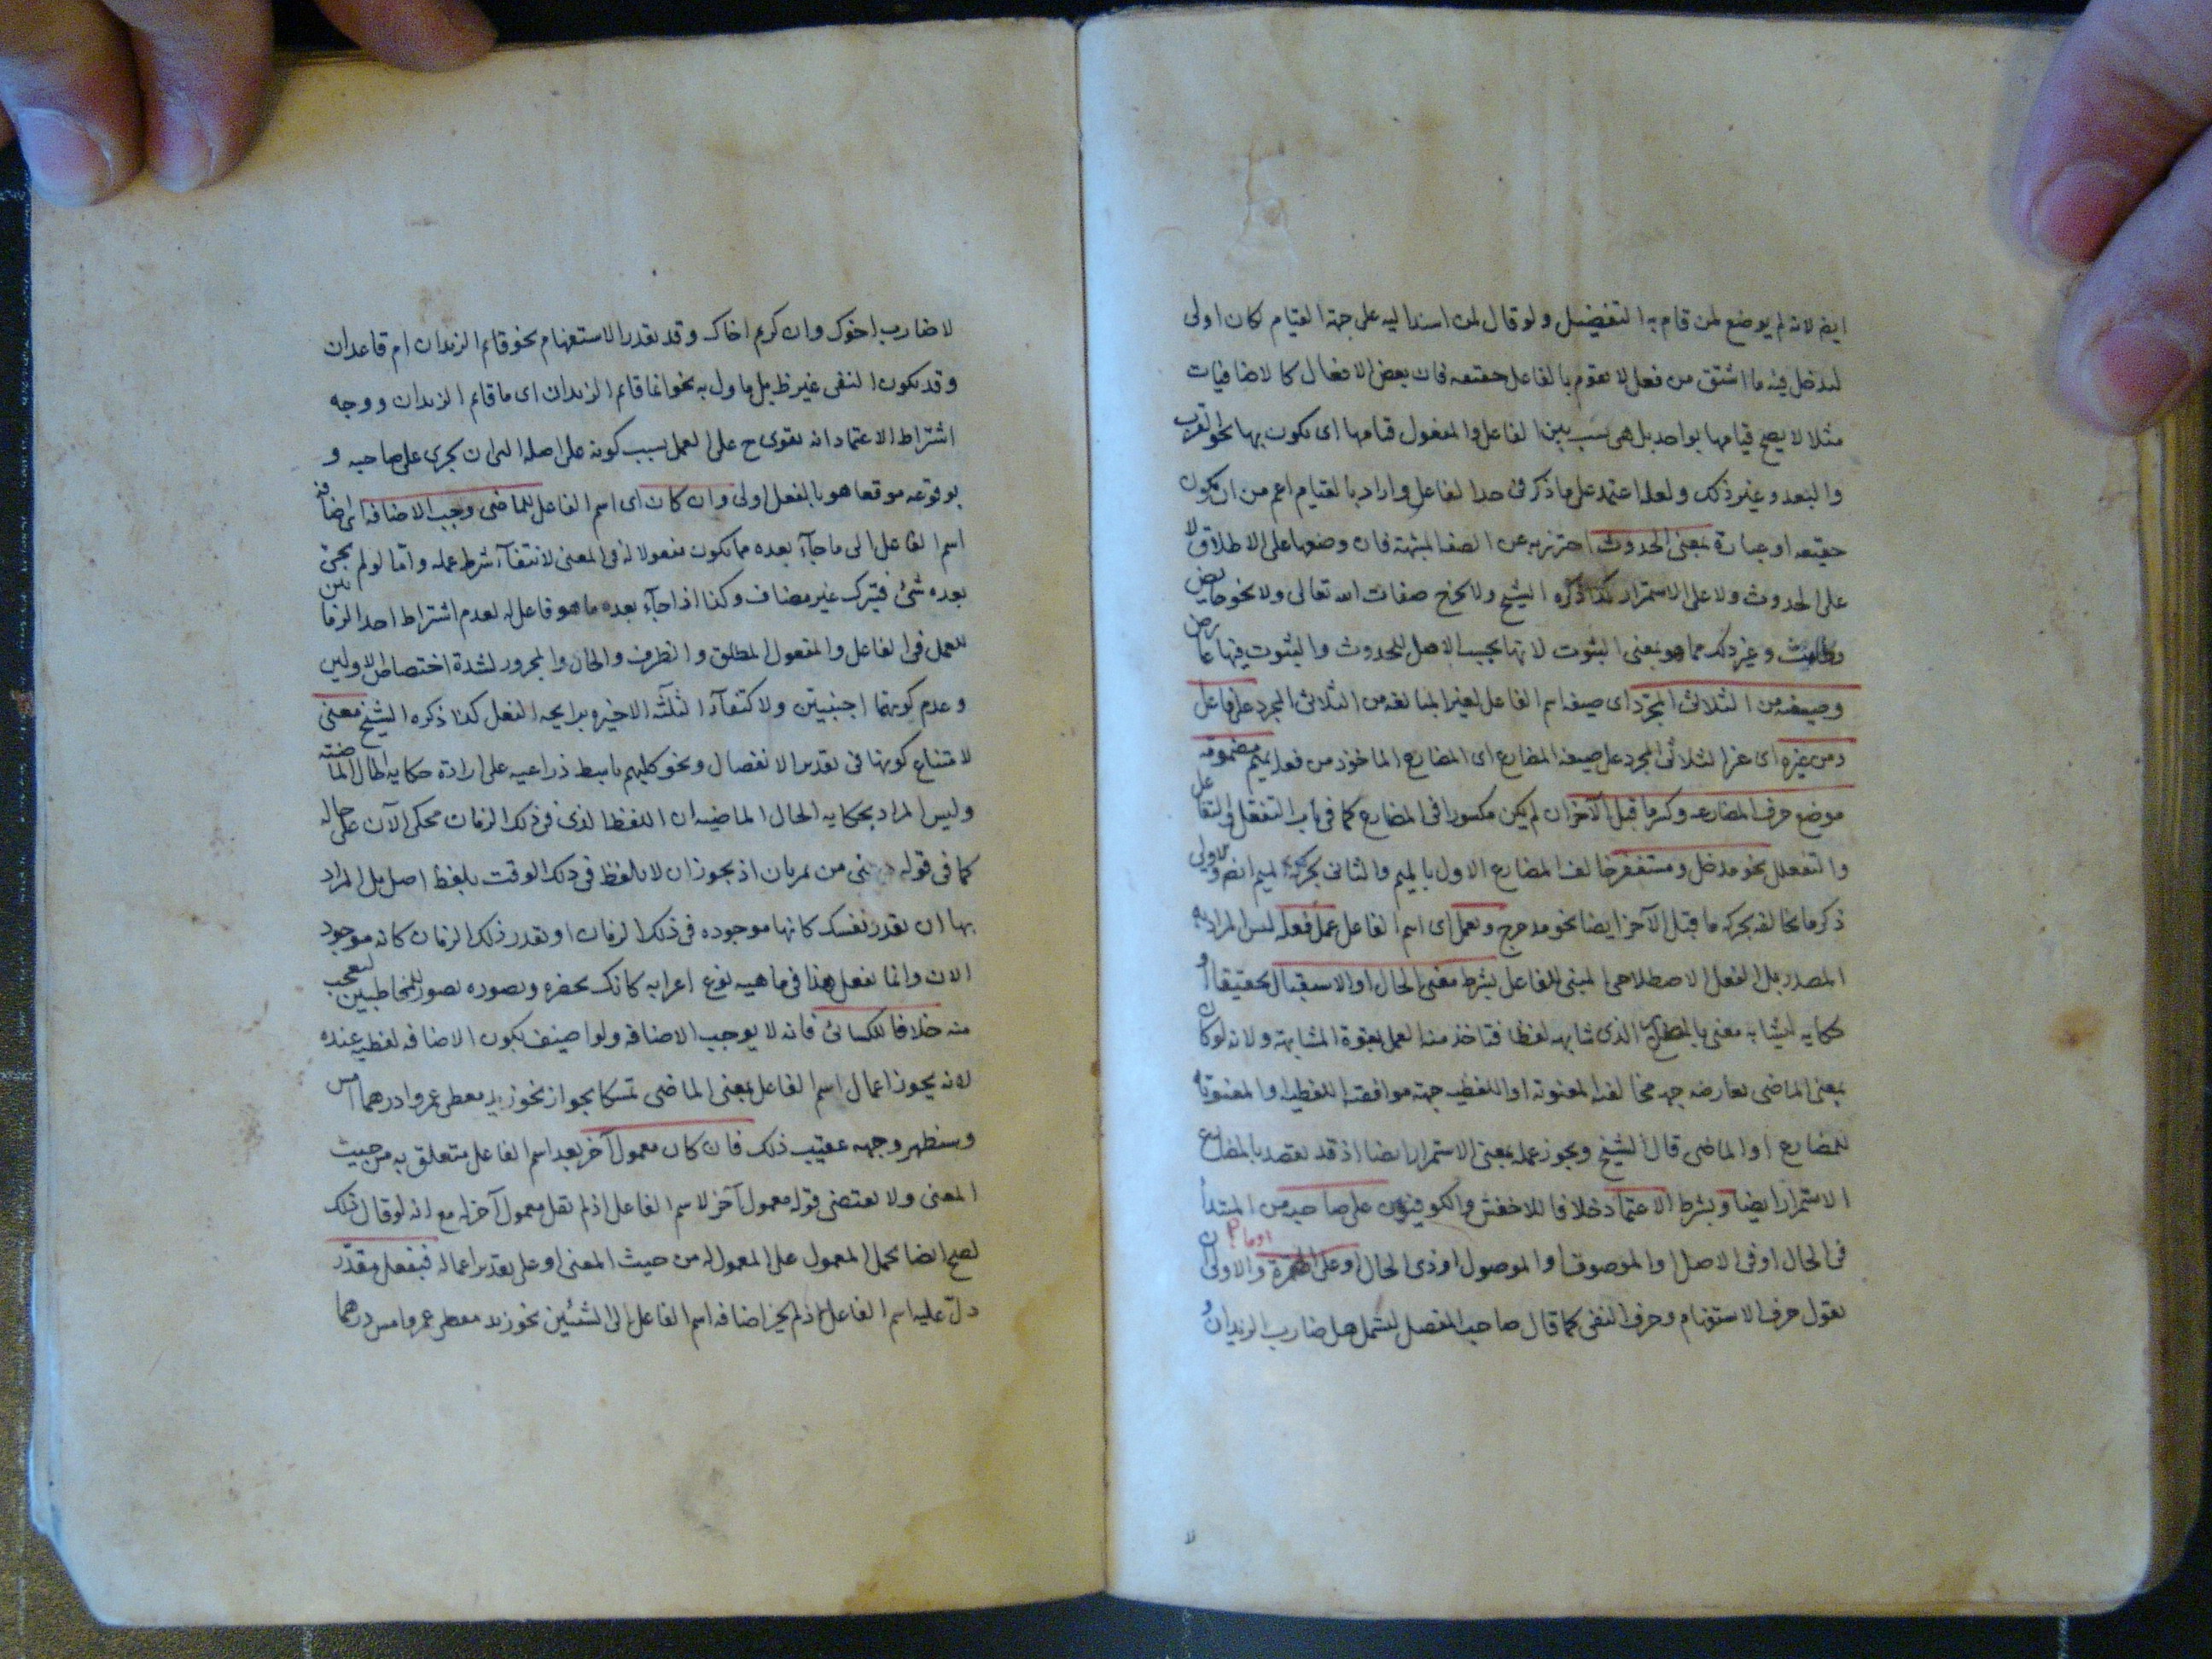 ايضا لانه لم يوضع لمن قام به التفضيل ولو قال لمن اسند اليه على جهة القيام لكان اولى
ليدخل فيه ما اشتق من فعل لا يقوم بالفاعل حقيقة فان بعض الافعال كالاضافيات
مثلا لا يصح قيامها بواحد بل هى نسب بين الفاعل والمفعول قيامها اى يكون بها نحو القرب
والبعد وغير ذلك ولعله اعتمد على ما ذكر فى حد الفاعل واراد بالقيام اعم من ان يكون
حقيقة او عبارة بمعنى الحدوث احترز به عن الصفة المشبهة فان وضعها على الاطلاق لا
على الحدوث ولا على الاستمرار كذا ذكره الشيخ ولا يخرج صفات الله تعالى ولا نحو حايض
وطامث وغير ذلك مما هو بمعنى الثبوت لانها بحسب الاصل للحدوث والثبوت فيها عارض
وصيغته من الثلاثى المجرد اى صيغة اسم الفاعل لغير المبالغة من الثلاثى المجرد على فاعل
ومن غيره اى غير الثلاثى المجرد على صيغة المضارع اى المضارع الماخوذ من فعله بميم مضمومة
موضع حرف المضارعة وكسر ما قبل الآخر ان لم يكن مكسورا فى المضارع كما فى باب التفعل والتفاعل
والتفعلل نحو مدخل ومستغفر خالف المضارع الاول بالميم والثانى بحركة الميم ايضا والاولى
ذكر ما يخالفه بحركة ما قبل الآخر ايضا نحو مدحرج ويعمل اى اسم الفاعل عمل فعله ليس المراد به
المصدر بل الفعل الاصطلاحى المبنى للفاعل بشرط معنى الحال او الاستقبال تحقيقا او
حكاية ليشابه معنى بالفعل الذى شابهه لفظا فتاخذ منه العمل بقوة المشابهة ولانه لو كان
بمعنى الماضى يعارضه جهة مخالفته المعنوية او اللفظية جهة موافقته اللفظية او المعنوية
للمضارع او الماضى قال الشيخ ويجوز عمله بمعنى الاستمرار ايضا اذ قد يقصد بالمضارع
الاستمرار ايضا وبشرط الاعتماد خلافا للاخفش والكوفيين على صاحبه من المبتدأ
فى الحال او فى الاصل او الموصوف او الموصول او ذى الحال او على الهمزة او ما والاولى ان
يقول حرف الاستفهام وحرف النفى كما قال صاحب المفصل ليشمل هل ضارب الزيدان و
لا
لا ضارب اخوك وان كريم اخاك وقد يقدر الاستفهام نحو قائم الزيدان ام قاعدان
وقد يكون النفى غير ظ بل ماول به نحو انما قائم الزيدان اى ما قائم الزيدان ووجه
اشتراط الاعتماد انه يقوى ح على العمل بسبب كونه على اصله الى ان يجرى على صاحبه و
بوقوعه موقعا هو بالفعل اولى وان كان اى اسم الفاعل للماضى وجب الاضافة اى اضافة
اسم الفاعل الى ما جآء بعده مما يكون مفعولا له فى المعنى لانتفآء شرط عمله وامّا لو لم يجئ
بعده شئ فيترك غير مضاف وكذا اذا جآء بعده ما هو فاعل له لعدم اشتراط احد الزمانين
للعمل فى الفاعل والمفعول المطلق والظرف والحال والمجرور لشدة اختصاص الاولين
وعدم كونهما اجنبيتين ولاكتفآء الثلثة الاخيره برايحة الفعل كذا ذكره الشيخ معنى
لامتناع كونها فى تقدير الانفصال ونحو كلبهم باسط ذراعيه على ارادة حكاية الحال الماضية
وليس المراد بحكاية الحال الماضية ان اللفظ الذى فى ذلك الزمان محكى الآن على حاله
كما فى قوله من تمرتان اذ يجوز ان لا يلفظ فى ذلك الوقت بلفظ اصل بل المراد
بها ان تقدر نفسك كانها موجوده فى ذلك الزمان او تقدر ذلك الزمان كانه موجود
الان وانما يفعل هذا فى ما هيه نوع اغرابه كانك تحضره وتصوره تصور للمخاطبين لتعجب
منه خلافا للكسائى فانه لا يوجب الاضافة ولو اضيف يكون الاضافة لفظية عنده
لانه يجوز اعمال اسم الفاعل بمعنى الماضى تمسكا بجواز نحو زيد معطى عمرو درهما امس
وسنظهر وجهه عقيب ذلك فان كان معمول آخر بعد اسم الفاعل متعلق به من حيث
المعنى ولا يقتضى قوله معمول آخر لاسم الفاعل اذ لم يقل معمول آخر له مع انه لو قال ذلك
لصح ايضا بحمل المعمول على المعمول له من حيث المعنى او على تقدير اعماله فبفعل مقدّر
دلّ عليه اسم الفاعل اذ لم يجز اضافة اسم الفاعل الى الشيئين نحو زيد معطى عمرو امس درهما